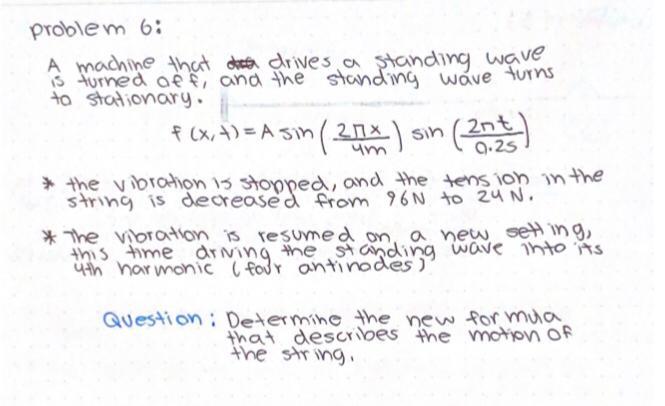 problem 6:
A machine that drives a standing wave
is turned off, and the standing wave turns
to stationary.
f (x,t) = A sin ( 2πx / 4m ) sin ( 2πt / 0.2s )
* the vibration is stopped, and the tension in the
string is decreased from 96N to 24N.
* The vibration is resumed on a new setting,
this time driving the standing wave into its
4th harmonic (four antinodes)
Question: Determine the new formula
that describes the motion of
the string.